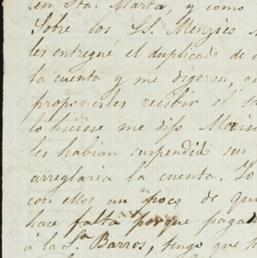 en Sta. Marta, y como
Sobre los SS. Menzies
les entregué el duplicado de
la cuenta y me digeron,
proponerles recibir el
lo hiciese me dijo
les habian suspendido sus
arreglaria la cuenta.
con ellos un poco de
hace falta porque
á la Sa. Barros, tengo que